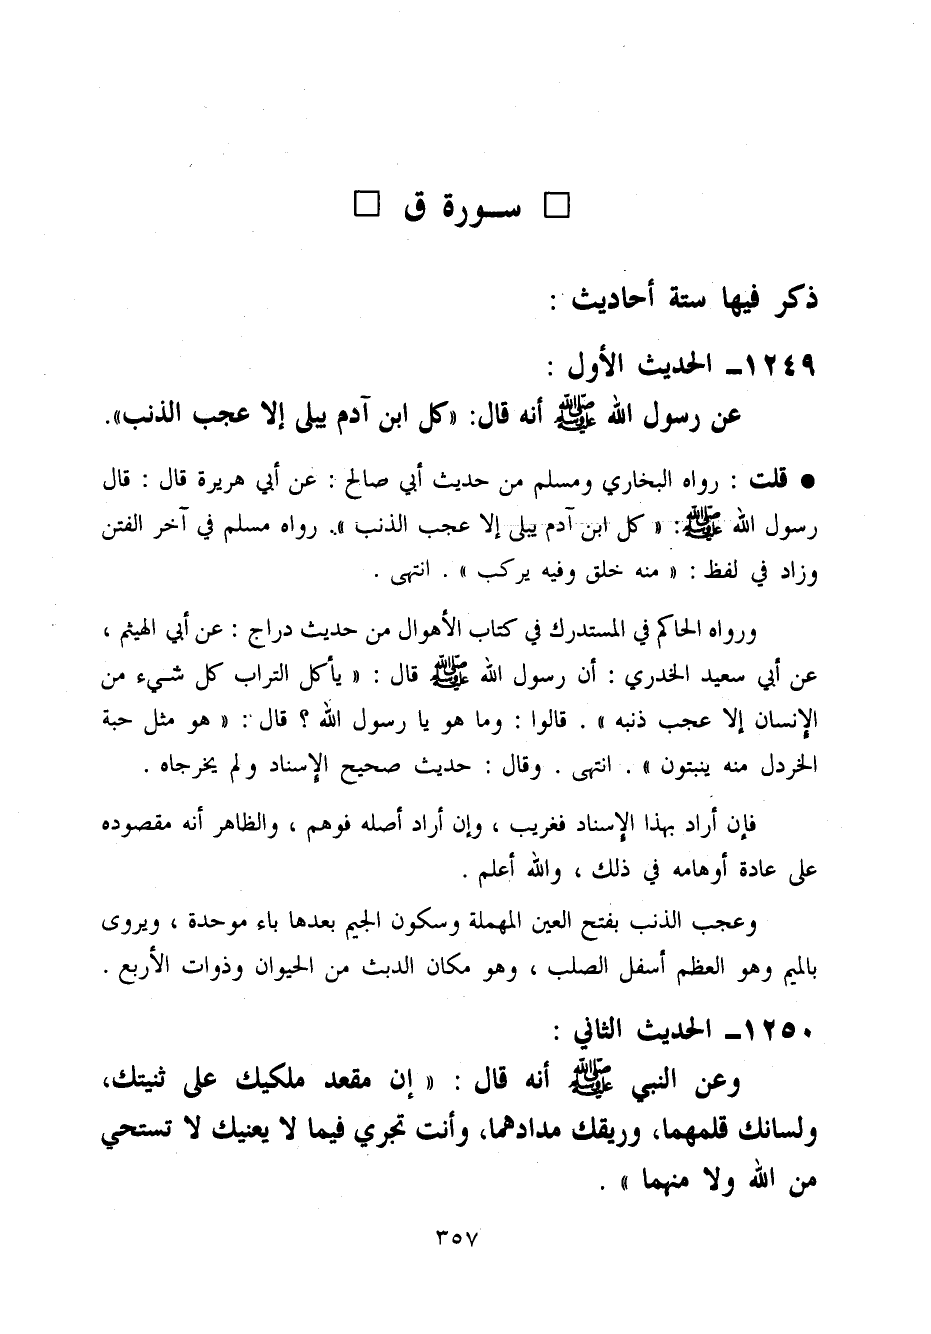 □ سورة ق □
ذكر فيها ستة أحاديث :
١٢٤٩ـ الحديث الأول :
عن رسول الله ﷺ أنه قال: «كل ابن آدم يبلى إلا عجب الذنب».
● قلت : رواه البخاري ومسلم من حديث أبي صالح : عن أبي هريرة قال : قال
رسول الله ﷺ: « كل ابن آدم يبلى إلا عجب الذنب ». رواه مسلم في آخر الفتن
وزاد في لفظ : « منه خلق وفيه يركب » . انتهى .
ورواه الحاكم في المستدرك في كتاب الأهوال من حديث دراج : عن أبي الهيثم ،
عن أبي سعيد الخدري : أن رسول الله ﷺ قال : « يأكل التراب كل شيء من
الإنسان إلا عجب ذنبه » . قالوا : وما هو يا رسول الله ؟ قال : « هو مثل حبة
الخردل منه ينبتون » . انتهى . وقال : حديث صحيح الإسناد ولم يخرجاه .
فإن أراد بهذا الإسناد فغريب ، وإن أراد أصله فوهم ، والظاهر أنه مقصوده
على عادة أوهامه في ذلك ، والله أعلم .
وعجب الذنب بفتح العين المهملة وسكون الجيم بعدها باء موحدة ، ويروى
بالميم وهو العظم أسفل الصلب ، وهو مكان الدبث من الحيوان وذوات الأربع .
١٢٥٠ـ الحديث الثاني :
وعن النبي ﷺ أنه قال : « إن مقعد ملكيك على ثنيتك،
ولسانك قلمهما، وريقك مدادهما، وأنت تجري فيما لا يعنيك لا تستحي
من الله ولا منهما » .
٣٥٧